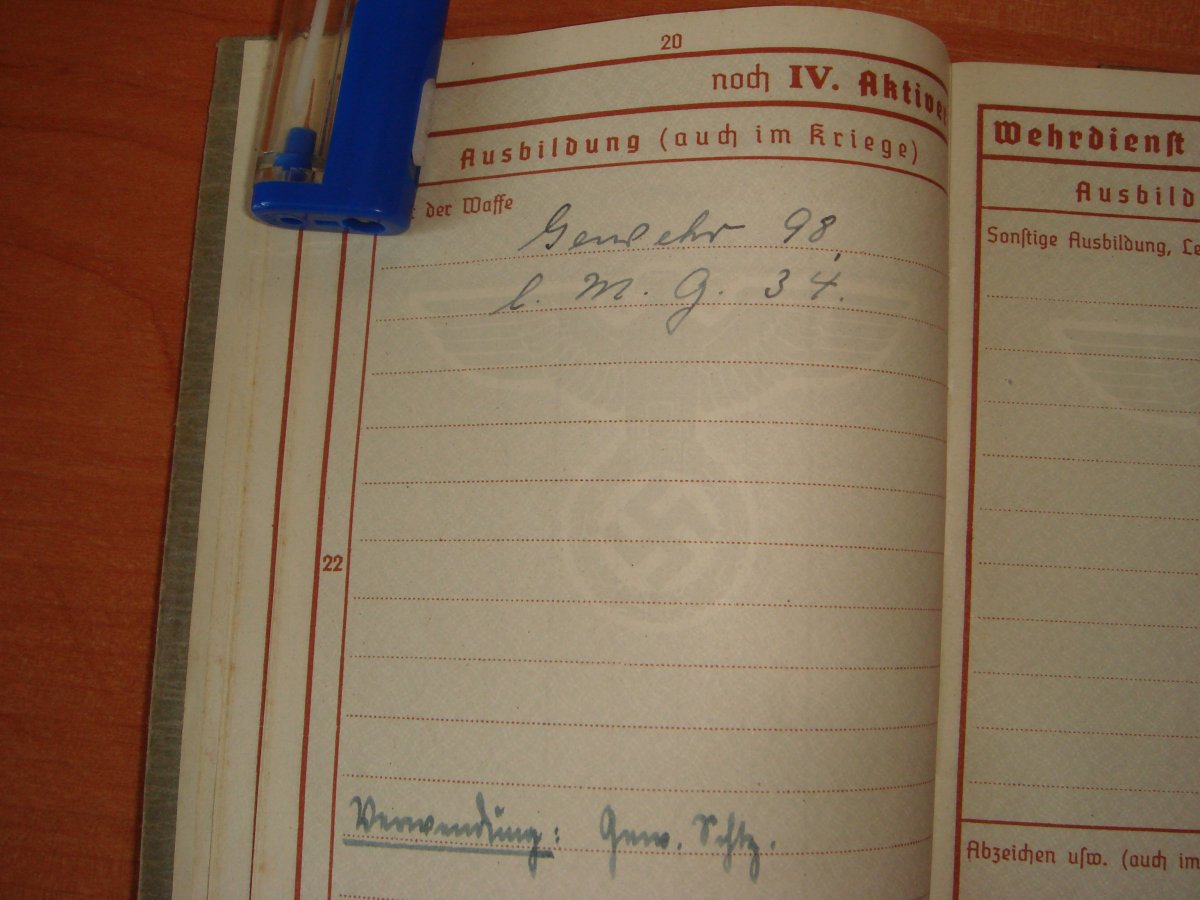 20
noch IV. Aktiver
Ausbildung (auch im Kriege)
der Waffe
Gewehr 98,
l. M. G. 34.
22
Verwendung: Gew. Schtz.
Wehrdienst
Ausbild
Sonstige Ausbildung, Le
Abzeichen usw. (auch im